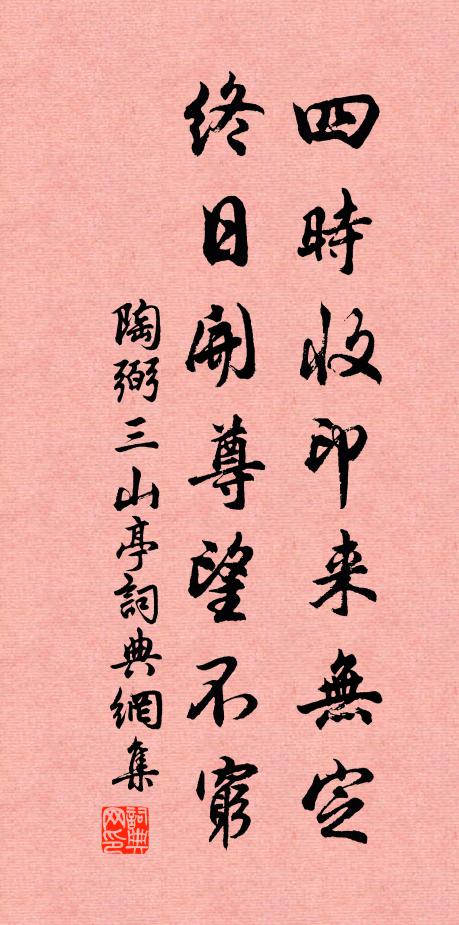 四時收印来無定
終日開尊望不窮
陶弼三山亭詞典網集
詞典网印